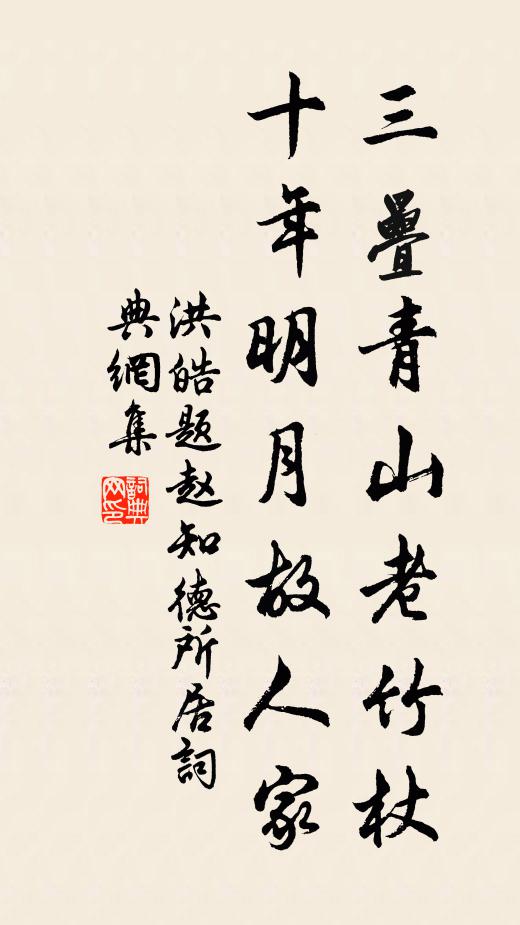 三疊青山老竹杖
十年明月故人家
洪皓題赵知德所居詞
典網集
詞典网印